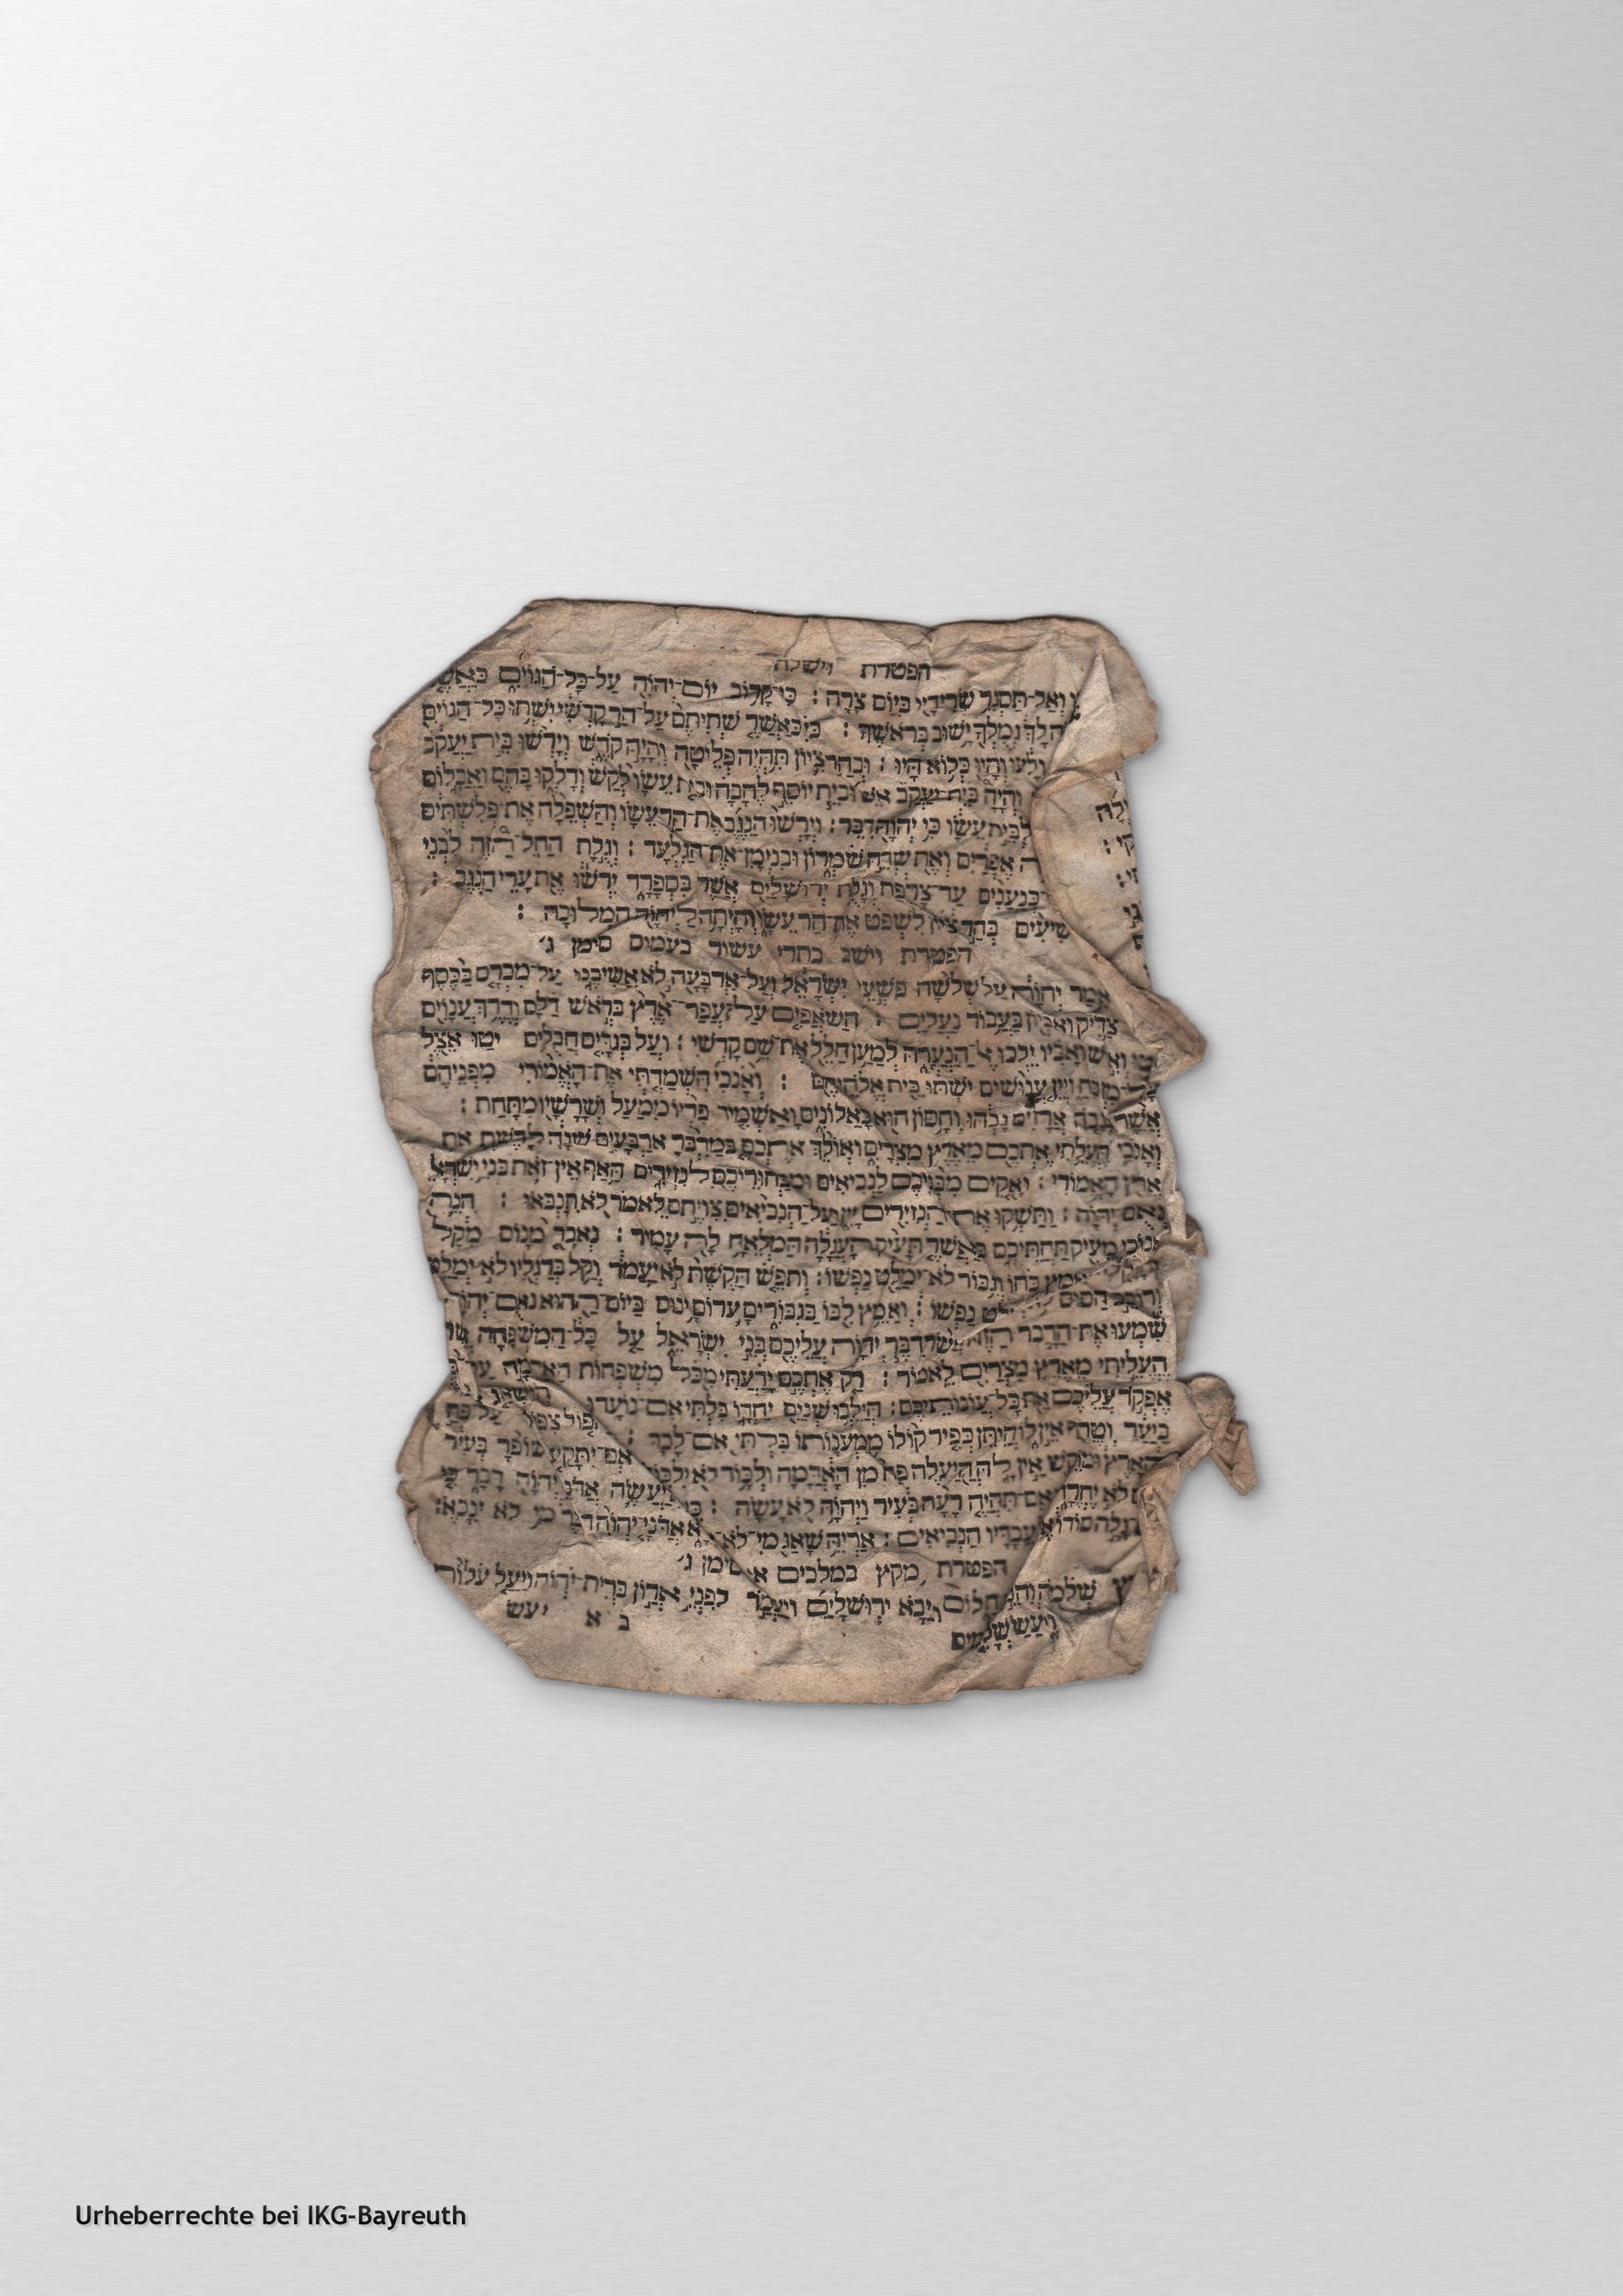 הפטרת וישלח
וְאַל־תַּסְגֵּר שְׂרִידָיו בְּיוֹם צָרָה : כִּי־קָרוֹב יוֹם־יְהוָֹה עַל־כָּל־הַגּוֹיִם כַּאֲשֶׁ
גְּמֻלְךָ יָשׁוּב בְּרֹאשֶׁךָ : כִּי כַּאֲשֶׁר שְׁתִיתֶם עַל־הַר קָדְשִׁי יִשְׁתּוּ כָל־הַגּוֹיִם
וְלָעוּ וְהָיוּ כְּלוֹא הָיוּ : וּבְהַר צִיּוֹן תִּהְיֶה פְלֵיטָה וְהָיָה קֹדֶשׁ וְיָרְשׁוּ בֵּית יַעֲקֹב
וְהָיָה בֵית־יַעֲקֹב אֵשׁ וּבֵית יוֹסֵף לֶהָבָה וּבֵית עֵשָׂו לְקַשׁ וְדָלְקוּ בָהֶם וַאֲכָלוּם
לְבֵית עֵשָׂו כִּי יְהוָֹה דִּבֵּר : וְיָרְשׁוּ הַנֶּגֶב אֶת־הַר עֵשָׂו וְהַשְּׁפֵלָה אֶת־פְּלִשְׁתִּים
אֶפְרַיִם וְאֵת שְׂדֵה שֹׁמְרוֹן וּבִנְיָמִן אֶת־הַגִּלְעָד : וְגָלֻת הַחֵל־הַזֶּה לִבְנֵי
כְּנַעֲנִים עַד־צָרְפַת וְגָלֻת יְרוּשָׁלַיִם אֲשֶׁר בִּסְפָרַד יִרְשׁוּ אֵת עָרֵי הַנֶּגֶב :
בְּהַר צִיּוֹן לִשְׁפֹּט אֶת־הַר עֵשָׂו וְהָיְתָה לַיהוָֹה הַמְּלוּכָה :
הפטרת וישב בתרי עשור בעמוס סימן ג׳
אָמַר יְהוָֹה עַל שְׁלֹשָׁה פִּשְׁעֵי יִשְׂרָאֵל וְעַל־אַרְבָּעָה לֹא אֲשִׁיבֶנּוּ עַל־מִכְרָם בַּכֶּסֶף
צַדִּיק וְאֶבְיוֹן בַּעֲבוּר נַעֲלָיִם : הַשֹּׁאֲפִים עַל־עֲפַר־אֶרֶץ בְּרֹאשׁ דַּלִּים וְדֶרֶךְ עֲנָוִים
וְאִישׁ וְאָבִיו יֵלְכוּ אֶל־הַנַּעֲרָה לְמַעַן חַלֵּל אֶת־שֵׁם קָדְשִׁי : וְעַל בְּגָדִים חֲבֻלִים יַטּוּ אֵצֶל
כָּל־מִזְבֵּחַ וְיֵין עֲנוּשִׁים יִשְׁתּוּ בֵּית אֱלֹהֵיהֶם : וְאָנֹכִי הִשְׁמַדְתִּי אֶת־הָאֱמֹרִי מִפְּנֵיהֶם
אֲשֶׁר כְּגֹבַהּ אֲרָזִים גָּבְהוֹ וְחָסֹן הוּא כָּאַלּוֹנִים וָאַשְׁמִיד פִּרְיוֹ מִמַּעַל וְשָׁרָשָׁיו מִתָּחַת :
וְאָנֹכִי הֶעֱלֵיתִי אֶתְכֶם מֵאֶרֶץ מִצְרָיִם וָאוֹלֵךְ אֶתְכֶם בַּמִּדְבָּר אַרְבָּעִים שָׁנָה לָרֶשֶׁת אֶת
אֶרֶץ הָאֱמוֹרִי : וָאָקִים מִבְּנֵיכֶם לִנְבִיאִים וּמִבַּחוּרֵיכֶם לִנְזִירִים הַאַף אֵין־זֹאת בְּנֵי יִשְׂרָאֵל
נְאֻם יְהוָֹה : וַתַּשְׁקוּ אֶת־הַנְּזִירִים יָיִן וְעַל־הַנְּבִיאִים צִוִּיתֶם לֵאמֹר לֹא תִּנָּבְאוּ : הִנֵּה
אָנוֹכִי מֵעִיק תַּחְתֵּיכֶם כַּאֲשֶׁר תָּעִיק הָעֲגָלָה הַמְלֵאָה לָהּ עָמִיר : וְאָבַד מָנוֹס מִקָּל
וְחָזָק לֹא־יְאַמֵּץ כֹּחוֹ וְגִבּוֹר לֹא־יְמַלֵּט נַפְשׁוֹ : וְתֹפֵשׂ הַקֶּשֶׁת לֹא יַעֲמֹד וְקַל בְּרַגְלָיו לֹא־יְמַלֵּט
וְרוֹכֵב הַסּוּס נַפְשׁוֹ : וְאַמִּיץ לִבּוֹ בַּגִּבּוֹרִים עָרוֹם יָנוּס בַּיּוֹם הַהוּא נְאֻם יְהוָֹה
שִׁמְעוּ אֶת־הַדָּבָר הַזֶּה אֲשֶׁר דִּבֶּר יְהוָֹה עֲלֵיכֶם בְּנֵי יִשְׂרָאֵל עַל כָּל־הַמִּשְׁפָּחָה
הֶעֱלֵיתִי מֵאֶרֶץ מִצְרַיִם לֵאמֹר : רַק אֶתְכֶם יָדַעְתִּי מִכֹּל מִשְׁפְּחוֹת הָאֲדָמָה עַל־
אֶפְקֹד עֲלֵיכֶם אֵת כָּל־עֲוֹנוֹתֵיכֶם : הֲיֵלְכוּ שְׁנַיִם יַחְדָּו בִּלְתִּי אִם־נוֹעָדוּ הֲיִשְׁאַג
בַּיַּעַר וְטֶרֶף אֵין לוֹ הֲיִתֵּן כְּפִיר קוֹלוֹ מִמְּעֹנָתוֹ בִּלְתִּי אִם־לָכָד : צִפּוֹר עַל־פַּח
הָאָרֶץ וּמוֹקֵשׁ אֵין לָהּ הֲיַעֲלֶה פַּח מִן הָאֲדָמָה וְלָכוֹד לֹא יִלְכּוֹד אִם־יִתָּקַע שׁוֹפָר בְּעִיר
לֹא יֶחֱרָדוּ אִם־תִּהְיֶה רָעָה בְּעִיר וַיהוָֹה לֹא עָשָׂה : כִּי יַעֲשֶׂה אֲדֹנָי יְהוִֹה דָּבָר כִּי
גָּלָה סוֹדוֹ אֶל עֲבָדָיו הַנְּבִיאִים : אַרְיֵה שָׁאָג מִי לֹא אֲדֹנָי יְהוִֹה דִּבֶּר מִי לֹא יִנָּבֵא :
הפטרת מקץ במלכים א׳ סימן ג׳
שְׁלֹמֹה וְהִנֵּה חֲלוֹם וַיָּבֹא יְרוּשָׁלַיִם וַיַּעֲמֹד לִפְנֵי אֲרוֹן בְּרִית־יְהוָֹה וַיַּעַל עֹלוֹת
וַיַּעַשׂ שְׁלָמִים
Urheberrechte bei IKG-Bayreuth